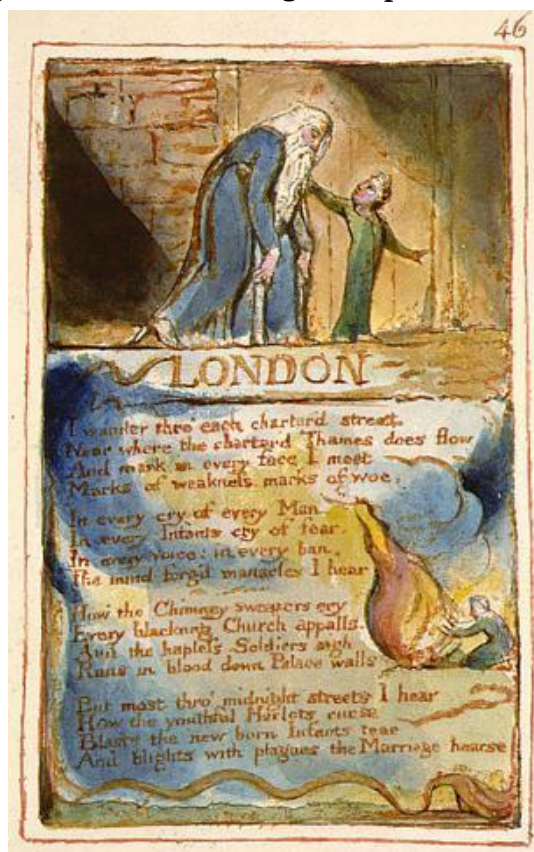 46
LONDON
I wander thro' each charter'd street,
Near where the charter'd Thames does flow
And mark in every face I meet
Marks of weakness, marks of woe.
In every cry of every Man
In every Infants cry of fear.
In every voice: in every ban.
The mind-forg'd manacles I hear
How the Chimney sweepers cry
Every blackning Church appalls.
And the hapless Soldiers sigh
Runs in blood down Palace walls
But most thro' midnight streets I hear
How the youthful Harlots curse
Blasts the new born Infants tear
And blights with plagues the Marriage hearse